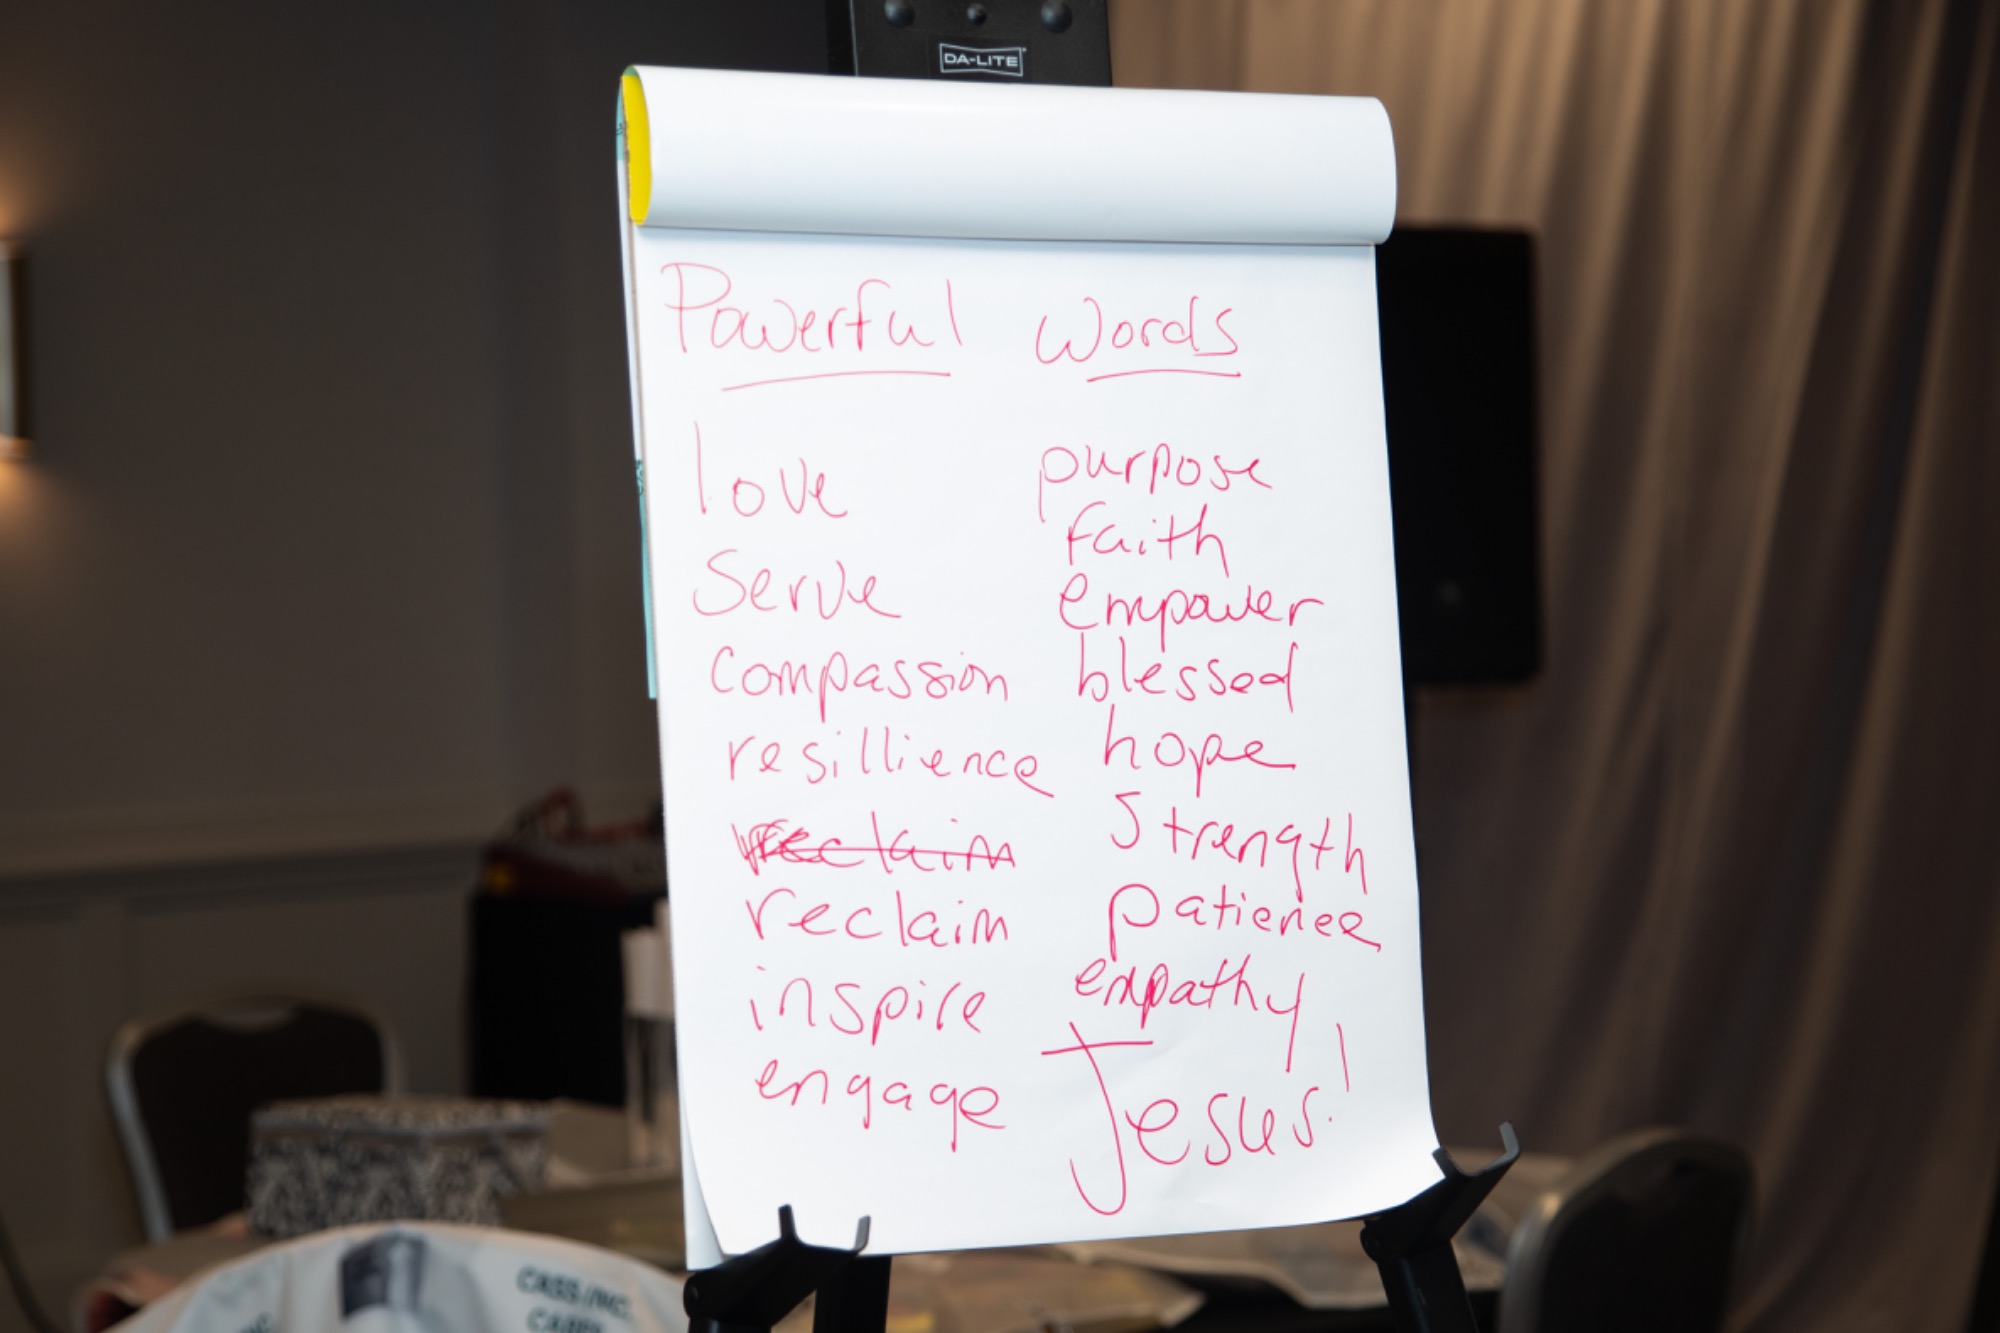 DA-LITE
Powerful Words
love
serve
compassion
resillience
reclaim
reclaim
inspire
engage
purpose
faith
empower
blessed
hope
strength
patience
empathy
Jesus!
CASS INC.